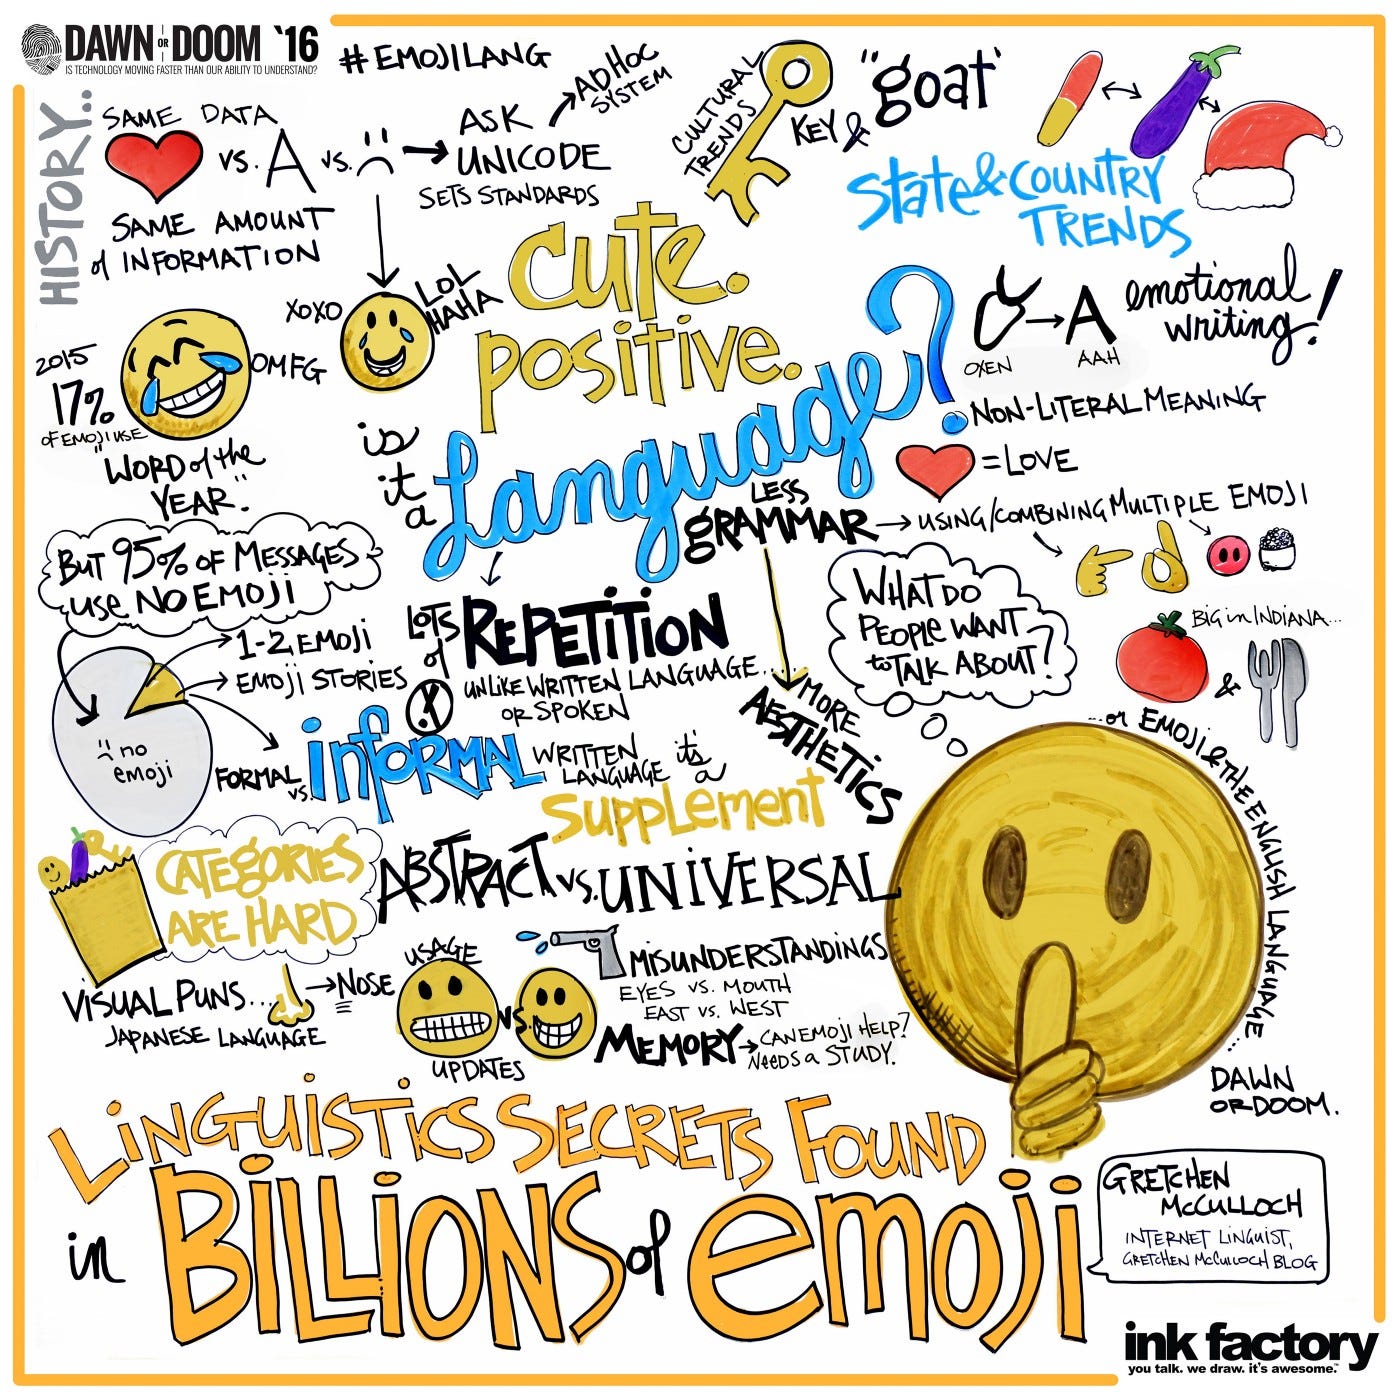 DAWN OR DOOM '16
IS TECHNOLOGY MOVING FASTER THAN OUR ABILITY TO UNDERSTAND?
#EMOJILANG
HISTORY...
SAME DATA
VS. A VS. :(
SAME AMOUNT
of INFORMATION
ASK
UNICODE
SETS STANDARDS
AD HOC
SYSTEM
CULTURAL
TRENDS
KEY &
"goat'
State & COUNTRY
TRENDS
cute.
positive.
XOXO
LOL
HAHA
OMFG
2015
17%
OF EMOJI USE
"WORD of the
YEAR."
is
it
a
Language?
OXEN
A
AAH
emotional
writing!
NON-LITERAL MEANING
= LOVE
LESS
GRAMMAR
USING/COMBINING MULTIPLE EMOJI
BUT 95% OF MESSAGES
use NO EMOJI
1-2 EMOJI
EMOJI STORIES
:( no
emoji
LOTS
of
REPETITION
UNLIKE WRITTEN LANGUAGE....
OR SPOKEN
MORE
AESTHETICS
WHAT DO
PEOPLE WANT
to TALK ABOUT?
BIG in INDIANA...
&
FORMAL
vs.
informal
WRITTEN
LANGUAGE
it's
a
Supplement
CATEGORIES
ARE HARD
ABSTRACT vs. UNIVERSAL
VISUAL PUNS...
JAPANESE LANGUAGE
NOSE
USAGE
vs.
UPDATES
MISUNDERSTANDINGS
EYES VS. MOUTH
EAST VS. WEST
MEMORY
CAN EMOJI HELP?
NEEDS a STUDY.
...or EMOJI & THE ENGLISH LANGUAGE...
DAWN
OR DOOM.
LINGUISTICS SECRETS FOUND
in BILLIONS of emoji
GRETCHEN
McCULLOCH
INTERNET LINGUIST,
GRETCHEN McCULLOCH BLOG
ink factory
you talk. we draw. it's awesome.™